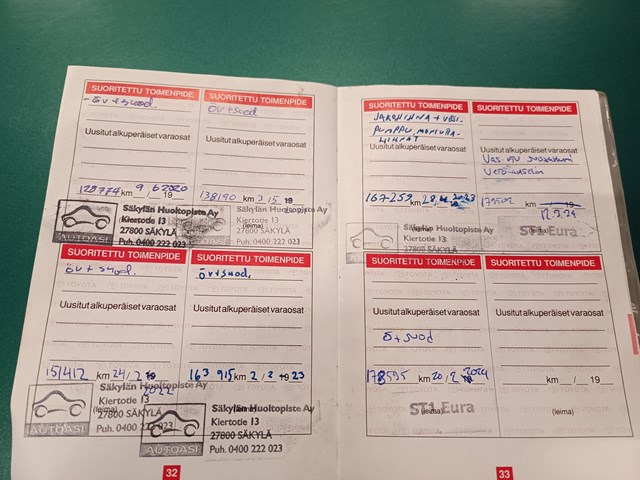 SUORITETTU TOIMENPIDE
öv+suod.
Uusitut alkuperäiset varaosat
128774 km 9/6 2020 19
Säkylän Huoltopiste Ay
Kiertotie 13
27800 SÄKYLÄ
Puh. 0400 222 023
AUTOASI
SUORITETTU TOIMENPIDE
öv+suod
Uusitut alkuperäiset varaosat
138190 km 3/5 19
Säkylän Huoltopiste Ay
Kiertotie 13
(leima)
27800 SÄKYLÄ
Puh. 0400 222 023
SUORITETTU TOIMENPIDE
öv+suod.
Uusitut alkuperäiset varaosat
151412 km 24/2 19
2022
Säkylän Huoltopiste Ay
(leima)
Kiertotie 13
27800 SÄKYLÄ
Puh. 0400 222 023
AUTOASI
SUORITETTU TOIMENPIDE
öv+suod,
Uusitut alkuperäiset varaosat
163 915 km 2/2 19 23
Säkylän Huoltopiste Ay
(leima)
Kiertotie 13
27800 SÄKYLÄ
Puh. 0400 222 023
AUTOASI
32
SUORITETTU TOIMENPIDE
JAKOHIHNA + VESI-
PUMPPU,
HIHNAT
Uusitut alkuperäiset varaosat
167259 km 28, 2023
Säkylän Huoltopiste Ay
Kiertotie 13
(leima)
27800 SÄKYLÄ
Puh. 0400 222 023
AUTOASI
SUORITETTU TOIMENPIDE
Uusitut alkuperäiset varaosat
Vas.
km
12.2.24
ST1 Eura
(leima)
SUORITETTU TOIMENPIDE
Uusitut alkuperäiset varaosat
Ö+suod
178595 km 20/2 19 2024
ST1 Eura
(leima)
SUORITETTU TOIMENPIDE
Uusitut alkuperäiset varaosat
km __/__ 19__
(leima)
33